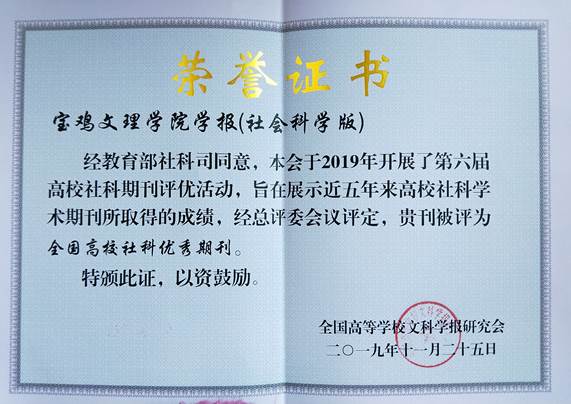 荣誉证书
宝鸡文理学院学报(社会科学版)
经教育部社科司同意，本会于2019年开展了第六届
高校社科期刊评优活动，旨在展示近五年来高校社科学
术期刊所取得的成绩，经总评委会议评定，贵刊被评为
全国高校社科优秀期刊。
特颁此证，以资鼓励。
全国高等学校文科学报研究会
二〇一九年十一月二十五日